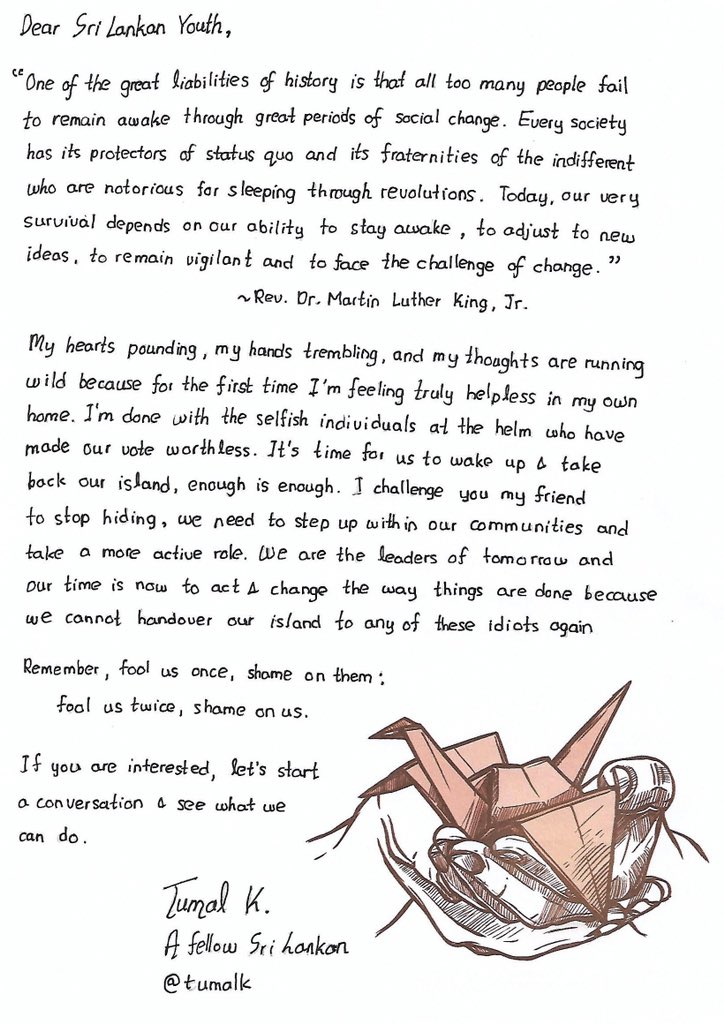 Dear Sri Lankan Youth,
“One of the great liabilities of history is that all too many people fail
to remain awake through great periods of social change. Every society
has its protectors of status quo and its fraternities of the indifferent
who are notorious for sleeping through revolutions. Today, our very
survival depends on our ability to stay awake, to adjust to new
ideas, to remain vigilant and to face the challenge of change.”
~Rev. Dr. Martin Luther King, Jr.
My hearts pounding, my hands trembling, and my thoughts are running
wild because for the first time I'm feeling truly helpless in my own
home. I'm done with the selfish individuals at the helm who have
made our vote worthless. It's time for us to wake up & take
back our island, enough is enough. I challenge you my friend
to stop hiding, we need to step up within our communities and
take a more active role. We are the leaders of tomorrow and
our time is now to act & change the way things are done because
we cannot handover our island to any of these idiots again
Remember, fool us once, shame on them;
fool us twice, shame on us.
If you are interested, let's start
a conversation & see what we
can do.
Tumal K.
A fellow Sri Lankan
@tumalk